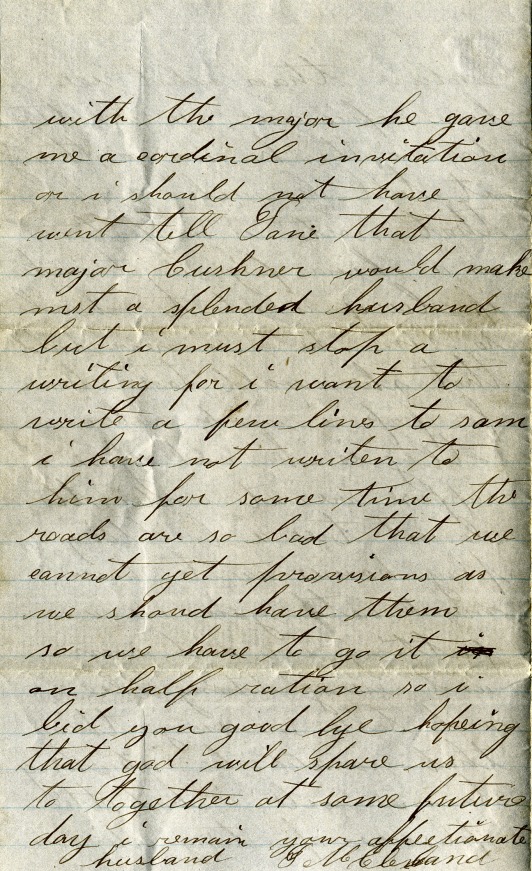 with the major he gave
me a cordinal invitation
or i should not have
went tell Jane that
major Cushner would make
mst a splended husband
but i must stop a
writing for i want to
write a few lines to sam
i have not writen to
him for some time the
roads are so bad that we
cannot get provisions as
we shoud have them
so we have to go it in
on half ration so i
bid you good bye hopeing
that god will spare us
to together at some future
day i remain your affectionate
husband